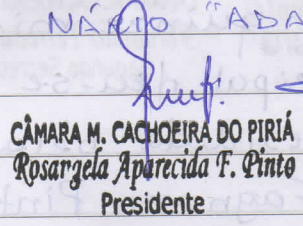 NÁRIO "ADA
CÂMARA M. CACHOEIRA DO PIRIÁ
Rosangela Aparecida F. Pinto
Presidente